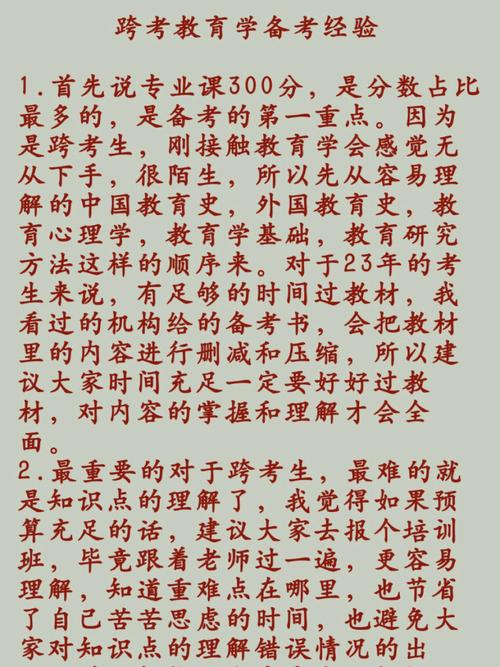 跨考教育学备考经验
1.首先说专业课300分，是分数占比
最多的，是备考的第一重点。因为
是跨考生，刚接触教育学会感觉无
从下手，很陌生，所以先从容易理
解的中国教育史，外国教育史，教
育心理学，教育学基础，教育研究
方法这样的顺序来。对于23年的考
生来说，有足够的时间过教材，我
看过的机构给的备考书，会把教材
里的内容进行删减和压缩，所以建
议大家时间充足一定要好好过教
材，对内容的掌握和理解才会全
面。
2.最重要的对于跨考生，最难的就
是知识点的理解了，我觉得如果预
算充足的话，建议大家去报个培训
班，毕竟跟着老师过一遍，更容易
理解，知道重难点在哪里，也节省
了自己苦苦思虑的时间，也避免大
家对知识点的理解错误情况的出